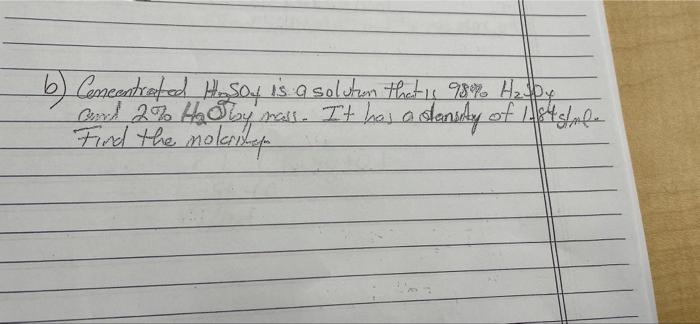 b) Concentrated H₂SO₄ is a solution that is 98% H₂SO₄
and 2% H₂O by mass. It has a density of 1.84 g/mL.
Find the molarity